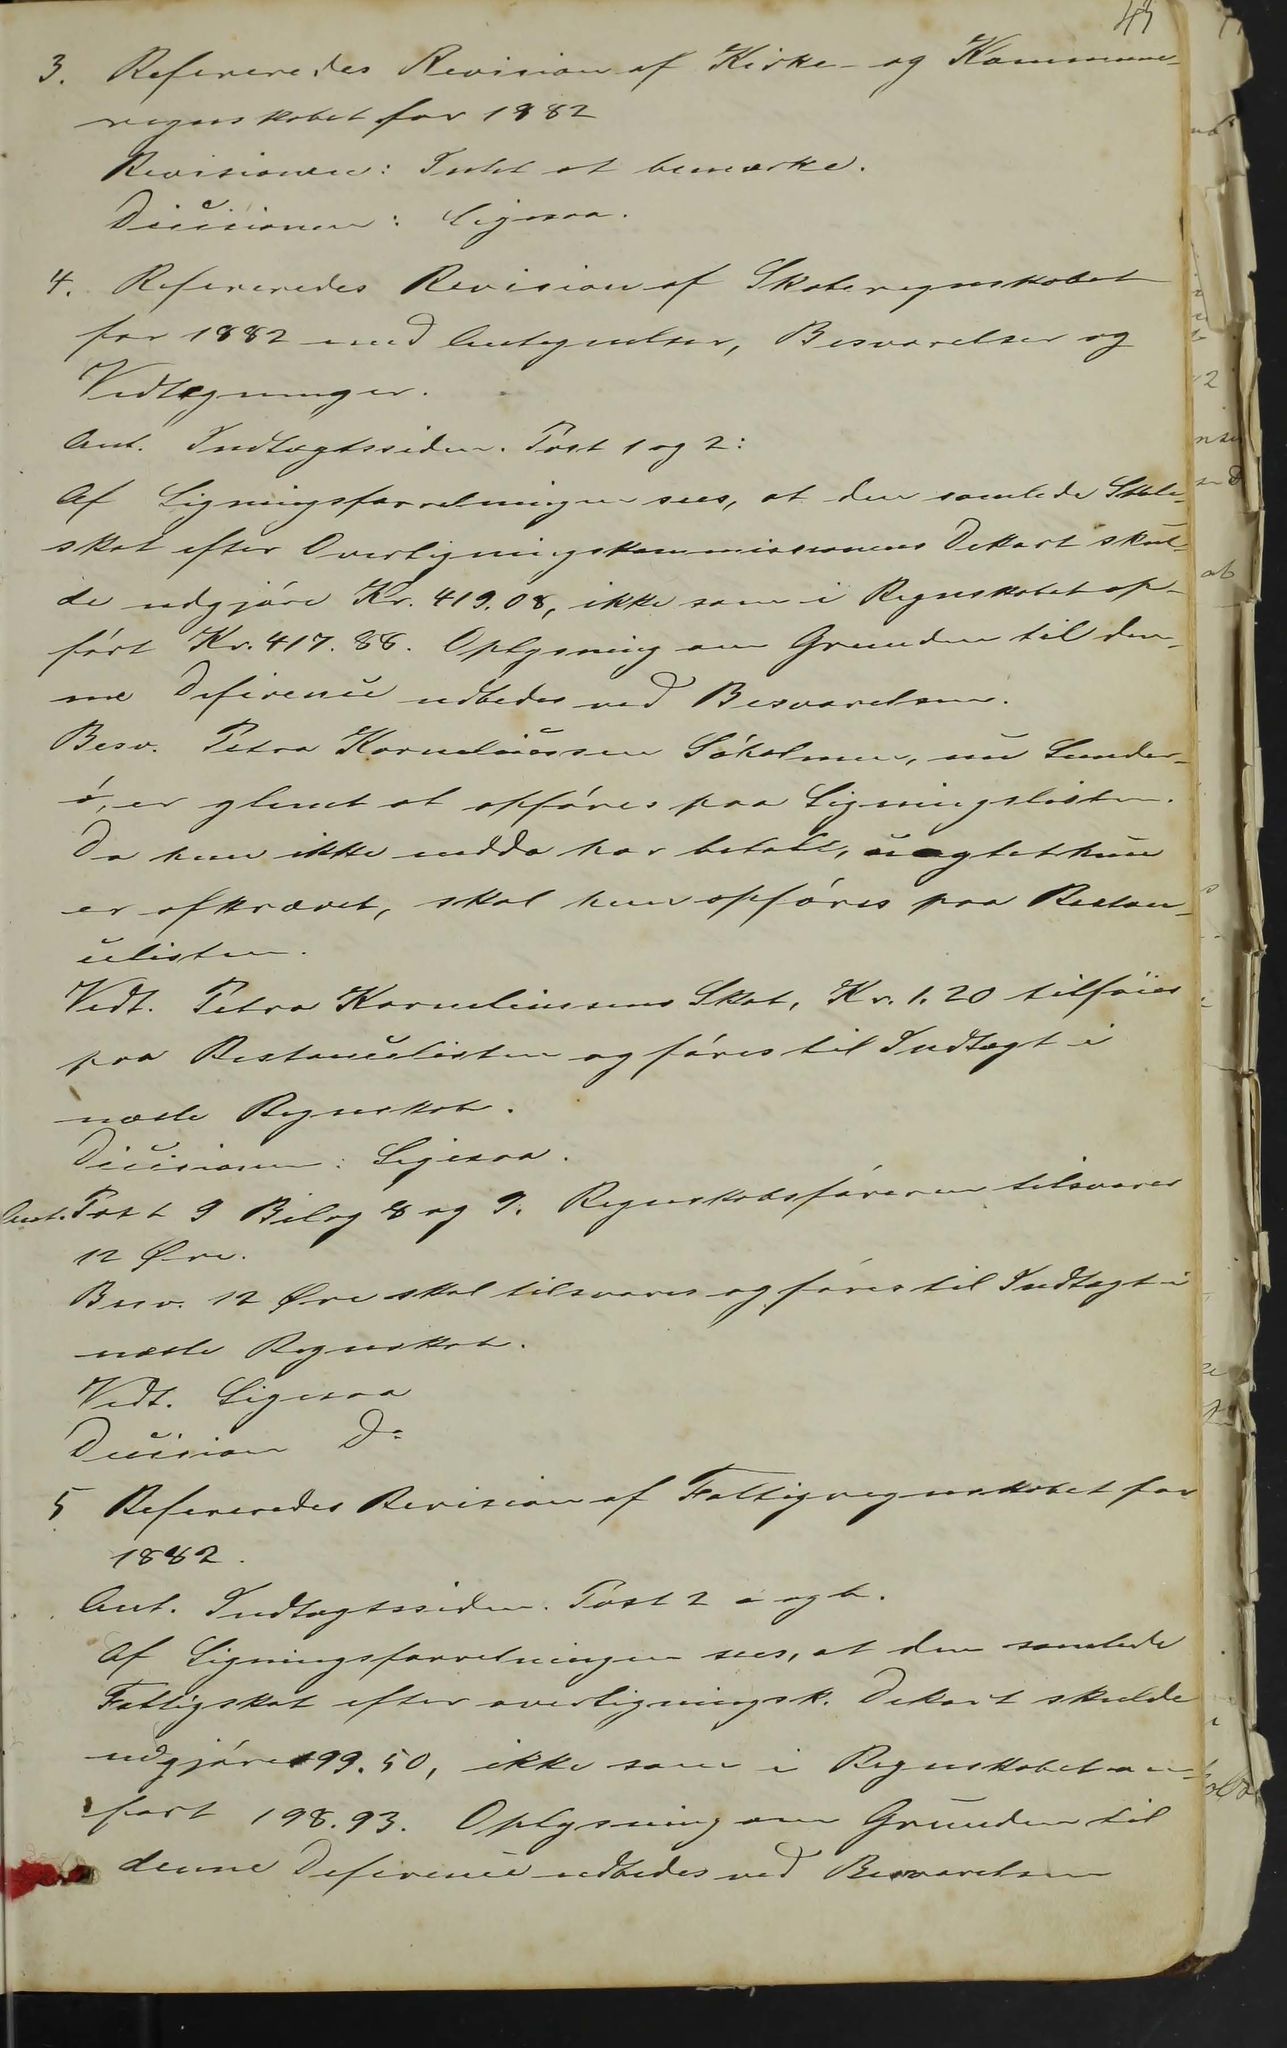 43
3. Refereredes Revision af Kirke- og Kommune-
regnskabet for 1882
Revisionen: Intet at bemærke.
Decisionen: Ligesaa.
4. Refereredes Revision af Skoleregnskabet
for 1882 med Antegnelser, Besvarelser og
Vedtegninger.
Ant. Indtægtssiden. Post 1 og 2:
Af Ligningsforretningen sees, at den samlede Skole-
skat efter Overligningskommissionens Dekort skul-
de udgjöre Kr. 419.08, ikke som i Regnskabet op-
fört Kr. 417.88. Oplysning om Grunden til den-
ne Diference udbedes ved Besvarelsen.
Besv. Petra Korneliussen Söholmen, nu Sunder-
ö, er glemt at opföres paa Ligningslisten.
Da hun ikke endda har betalt, uagtet hun
er afkrævet, skal hun opföres paa Restan-
celisten.
Vedt. Petra Korneliussens Skat, Kr. 1.20 tilföies
paa Restancelisten og föres til Indtægt i
næste Regnskab.
Decisionen: Ligesaa.
Ant. Post 9 Bilag 8 og 9. Regnskabsföreren tilsvarer
12 Øre.
Besv. 12 Øre skal tilsvares og föres til Indtægt i
næste Regnskab.
Vedt. Ligesaa
Decision Do
5 Refereredes Revision af Fattigregnskabet for
1882.
Ant. Indtægtssiden. Post 2 a og b.
Af Ligningsforretningen sees, at den samlede
Fattigskat efter overligningsk. Dekort skulde
udgjöre 199.50, ikke som i Regnskabet an-
fört 198.93. Oplysning om Grunden til
denne Diference udbedes ved Besvarelsen